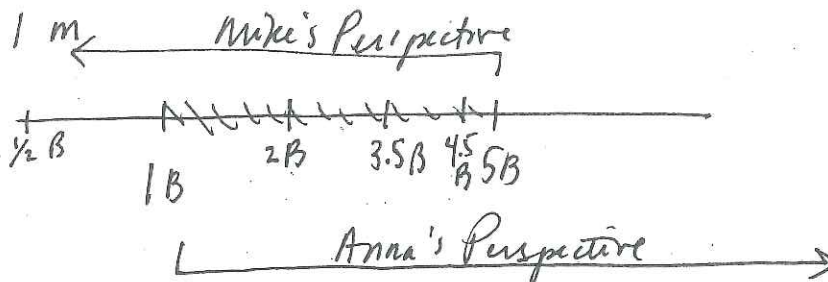 1 m Mike's Perspective
½ B 1 B 2B 3.5B 4.5 B 5B
Anna's Perspective